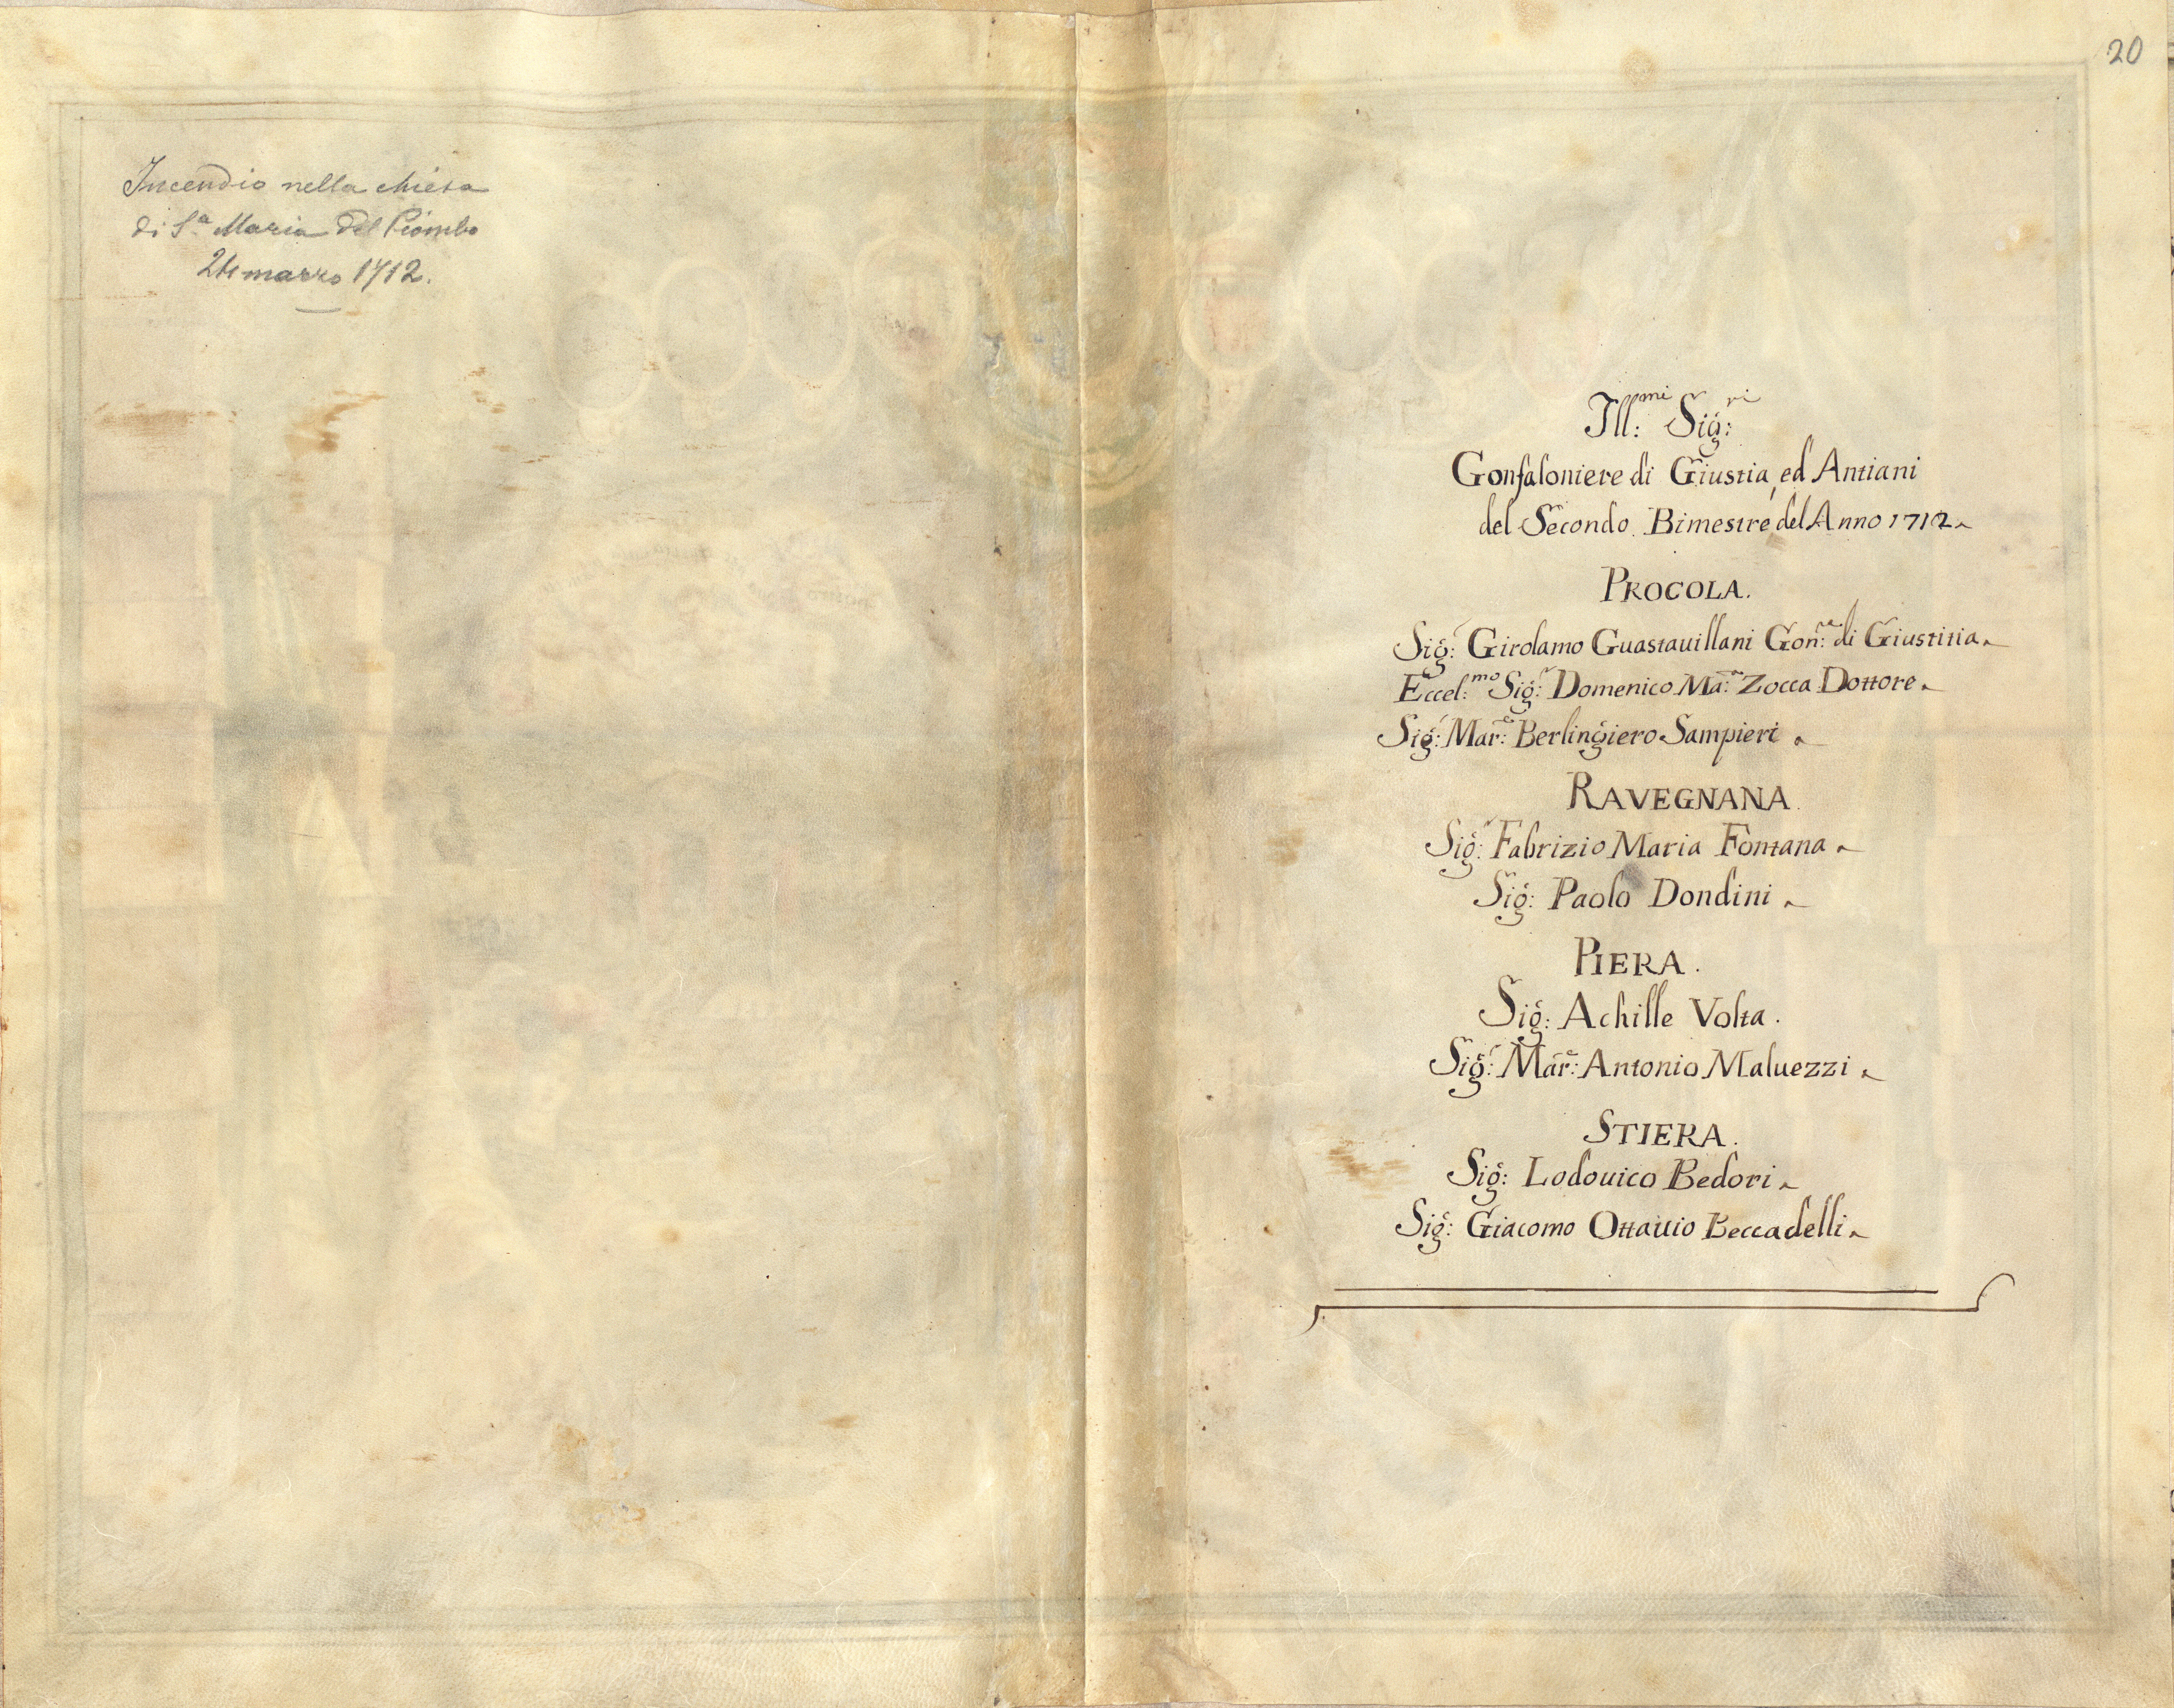 20
Incendio nella chiesa
di S.a Maria del Piombo
24 marzo 1712.
Ill:mi Sig:ri
Gonfaloniere di Giustia, ed Antiani
del Secondo Bimestre del Anno 1712
PROCOLA.
Sig:r Girolamo Guastauillani Gon:re di Giustitia
Eccel:mo Sig:r Domenico Ma:a Zocca Dottore
Sig:r Mar:e Berlingiero Sampieri
RAVEGNANA
Sig:r Fabrizio Maria Fontana
Sig:r Paolo Dondini
PIERA.
Sig:r Achille Volta.
Sig:r Mar:e Antonio Maluezzi
STIERA.
Sig:r Lodouico Bedori
Sig:r Giacomo Ottauio Beccadelli